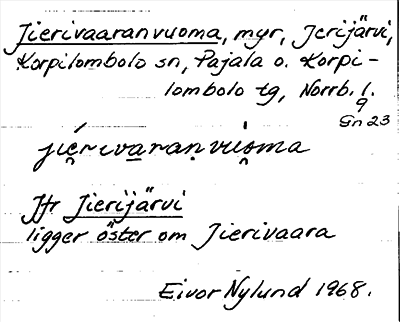 Jierivaaranvuoma, myr, Jerijärvi,
Korpilombolo sn, Pajala o. Korpi-
lombolo tg, Norrb. l.
9
Gn 23
ji̯e̯rivaraṇvu̯o̯ma
Jfr Jierijärvi
ligger öster om Jierivaara
Eivor Nylund 1968.